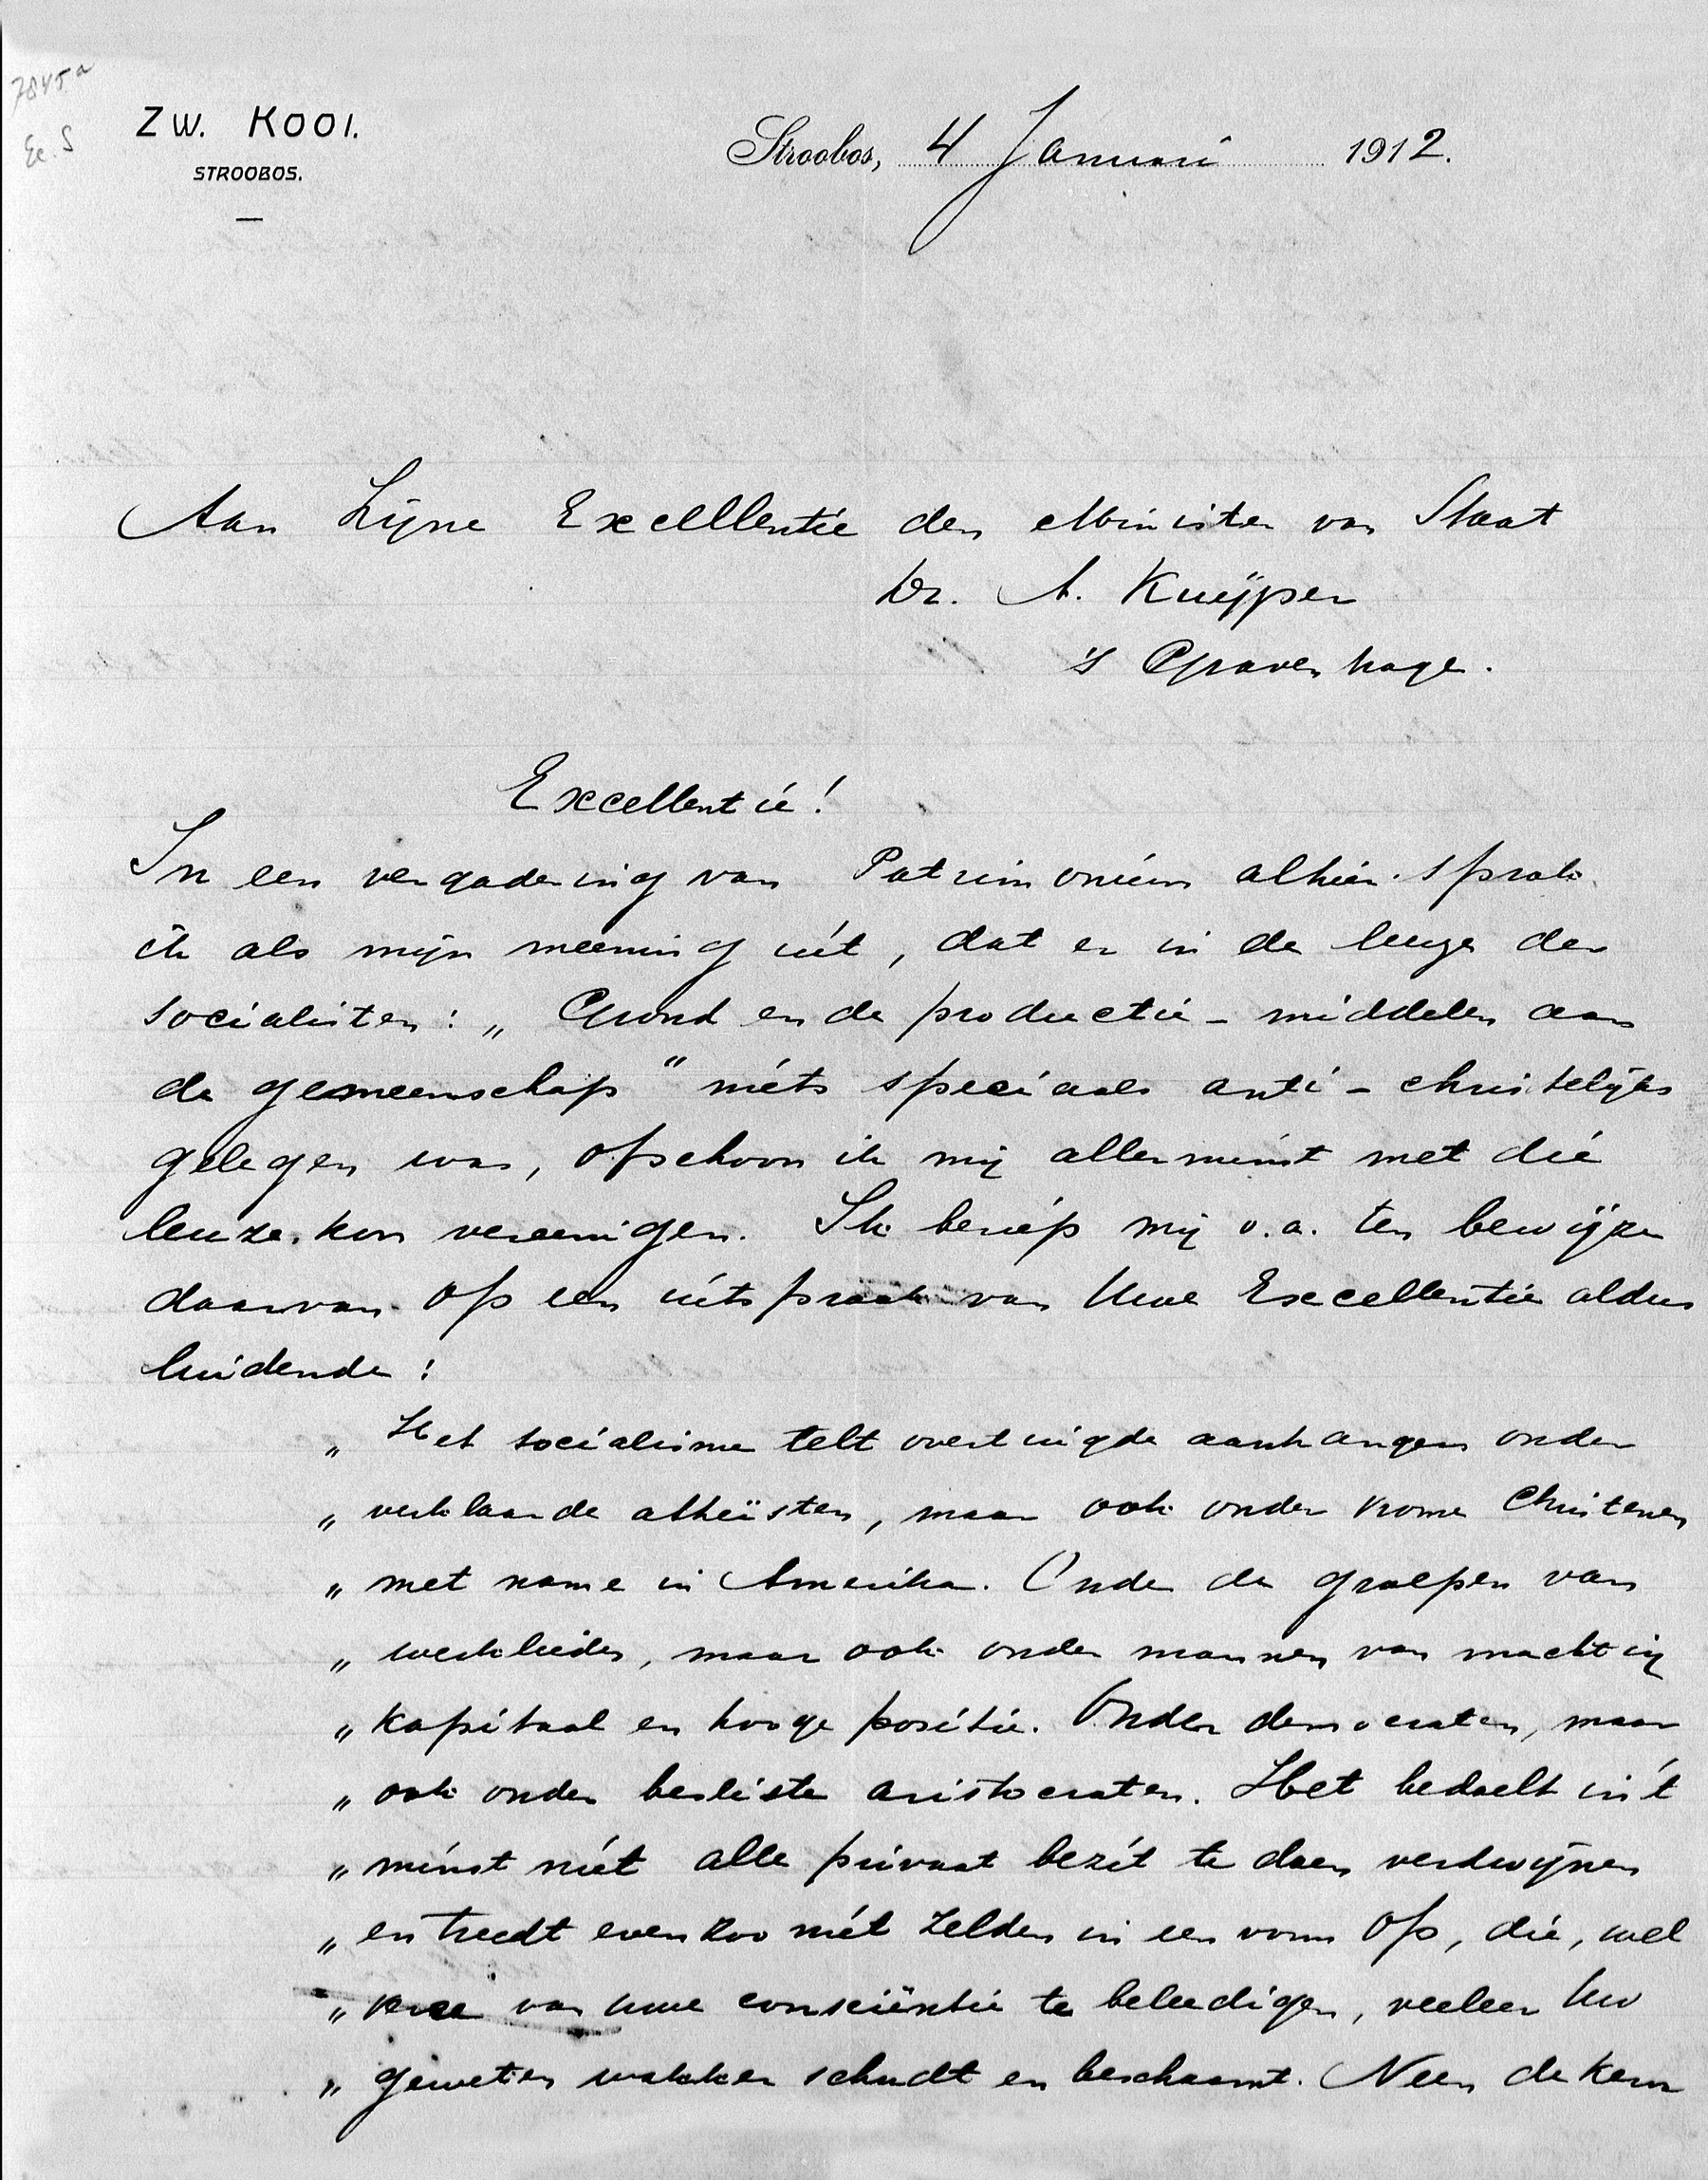 7845a
Ec. S
ZW. KOOI.
STROOBOS.
Stroobos, 4 Januari 1912.
Aan Zijne Excelllentie den Minister van Staat
Dr. A. Kuÿper
's Gravenhage.
Excellentie!
In een vergadering van Patrimonium alhier sprak
ik als mijn meening uit, dat er in de leuze der
socialisten: „Grond en de productie-middelen aan
de gemeenschap" niets speciaals anti-christelijks
gelegen was, ofschoon ik mij allerminst met die
leuze kon vereenigen. Ik beriep mij o.a. ten bewijze
daarvan op een uitspraak van Uwe Excellentie aldus
luidende:
„ Het socialisme telt overtuigde aanhangers onder
„ verklaarde atheïsten, maar ook onder vrome Christenen
„ met name in Amerika. Onder de groepen van
„ werklieden, maar ook onder mannen van macht in
„ kapitaal en hooge positie. Onder democraten, maar
„ ook onder besliste aristocraten. Het bedoelt in't
„ minst niet alle privaat bezit te doen verdwijnen
„ en treedt evenzoo niet zelden in een vorm op, die, wel
„ van uwe consciëntie te beleedigen, veeleer Uw
„ geweten wakker schudt en beschaamt. Neen de kern